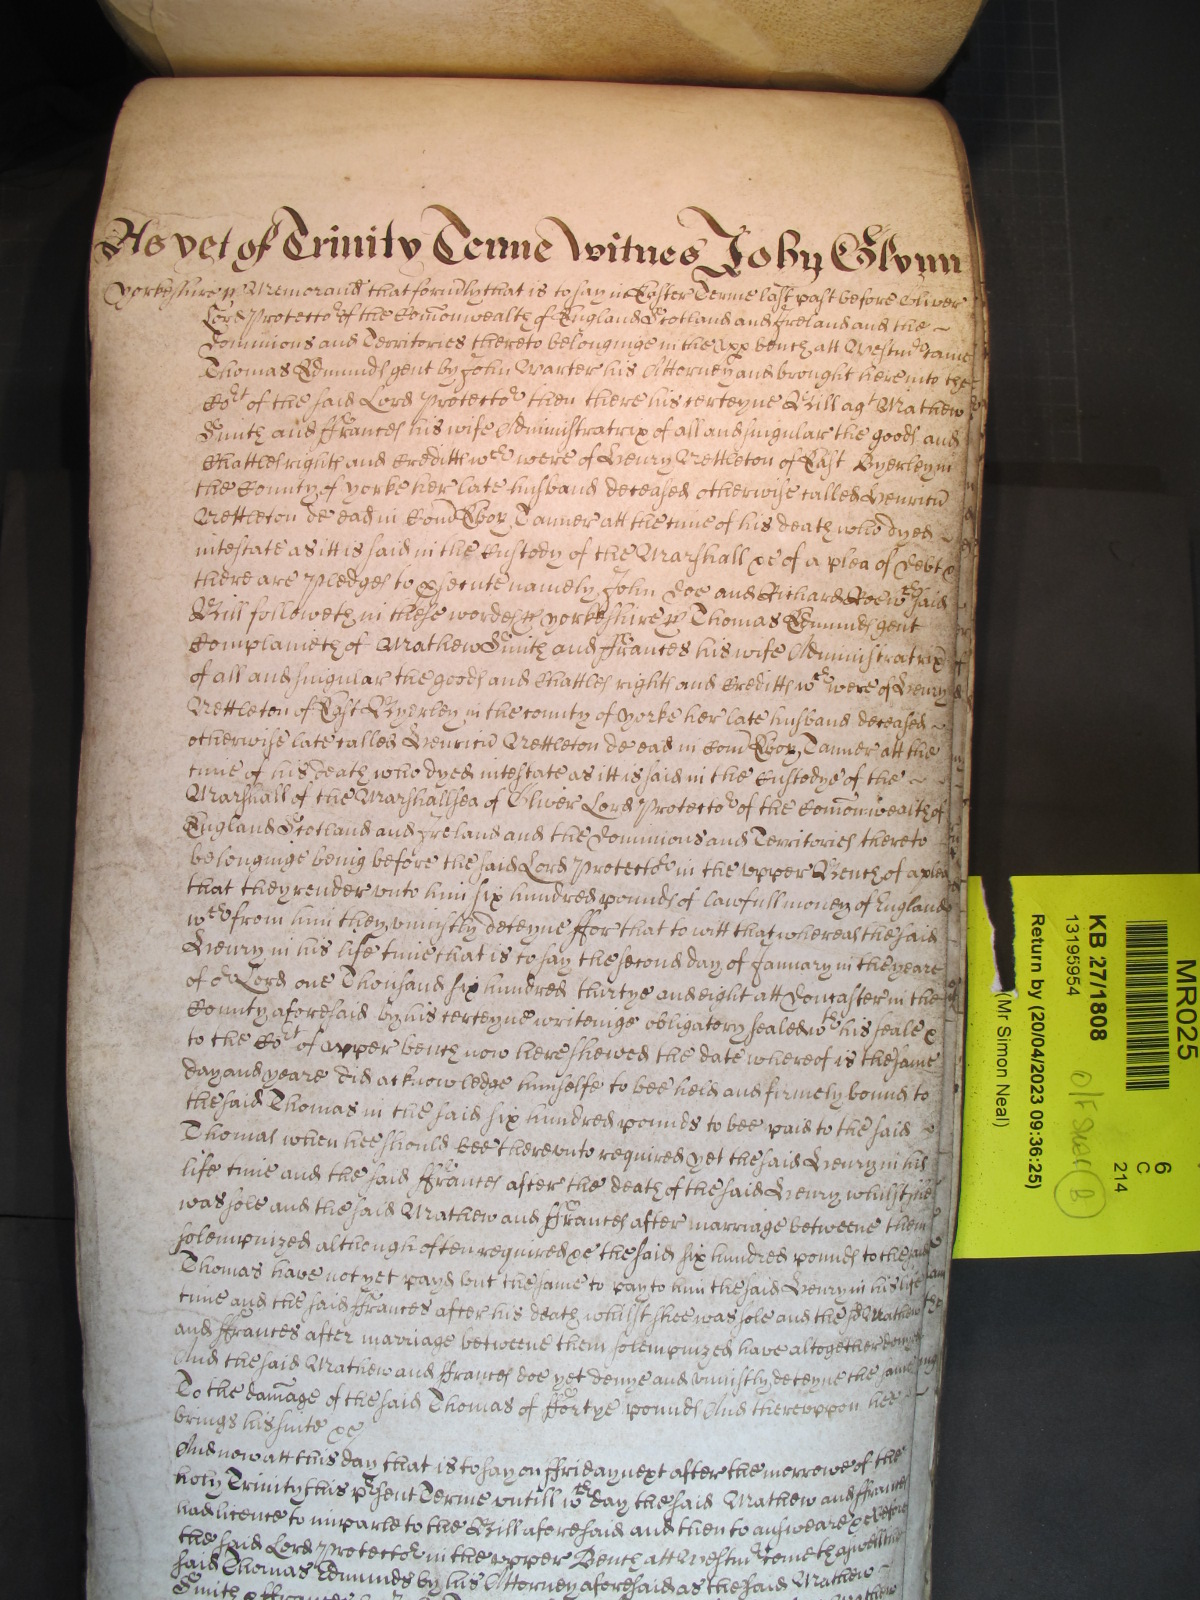 As yet of Trinity Terme Witnes John Glynn
Yorkeshire ss Memorand that formrly that is to say in Easter Terme last past before Oliver
Lord Protector of the Comonwealth of England Scotland and Ireland and the
Dominions and Territories thereto belonginge in the Upp bench att Westmr came
Thomas Edmunds gent by John Warter his Attorney and brought here into the
Cort of the said Lord Protector then there his certeyne Bill agt Mathew
Smith and ffrances his wife Administratrix of all and singular the goods and
Chattles rights and Creditts wch were of Henry Nettleton of East Byerley in
the County of yorke her late husband deceased otherwise called Henricu
Nettleton de ead in Com Ebor Tanner att the time of his death who dyed
intestate as itt is said in the Custody of the Marshall &c of a plea of debt &
there are Pledges to psecute namely John Doe and Richard Roe wch said
Bill followeth in these wordes ss yorkeshire ss Thomas Edmunds gent
Complaineth of Mathew Smith and ffrances his wife Administratrix
of all and singular the goods and Chattles rights and Creditts wch were of Henry
Nettleton of East Byerley in the county of yorke her late husband deceased
otherwise late called Henricu Nettleton de ead in Com Ebor Tanner att the
time of his death who dyed intestate as itt is said in the Custodye of the
Marshall of the Marshallsea of Oliver Lord Protector of the Comonwealth of
England Scotland and Ireland and the Dominions and Territories thereto
belonginge being before the said Lord Protector in the upper Bench of a plea
that they render unto him six hundred pounds of lawfull money of England
wch from him they uniustly deteyne ffor that to witt that whereas the said
Henry in his life time that is to say the second day of January in the yeare
of or Lord one Thousand six hundred thirtye and eight att Doncaster in the
County aforesaid by his certeyne writeinge obligatory sealed wth his seale &
to the Cort of upper bench now here shewed the date whereof is the same
day and yeare did acknowledge himselfe to bee held and firmely bound to
the said Thomas in the said six hundred pounds to bee paid to the said
Thomas when hee should bee thereunto required yet the said Henry in his
life time and the said ffrances after the death of the said Henry whilst she
was sole and the said Mathew and ffrances after marriage betweene them
solempnized although often required &c the said six hundred pounds to the said
Thomas have not yet payd but the same to pay to him the said Henry in his life
time and the said ffrances after his death whilst shee was sole and the sd Mathew
and ffrances after marriage betweene them solempnized have altogether denyed
And the said Mathew and ffrances doe yet denye and uniustly deteyne the same
To the damage of the said Thomas of ffortye pounds And thereuppon hee
brings his suite &c
And now att this day that is to say on ffriday next after the morrowe of the
holy Trinity this psent Terme untill wch day the said Mathew and ffrances
had licence to imparle to the Bill aforesaid and then to answeare &c before
the said Lord Protector in the upper Bench att Westmr cometh aswell the
said Thomas Edmunds by his Attorney aforesaid as the said Mathew
Smith & ffrances
MR025
6
C
214
KB 27/1808
13195954
Return by (20/04/2023 09:36:25)
(Mr Simon Neal)
B